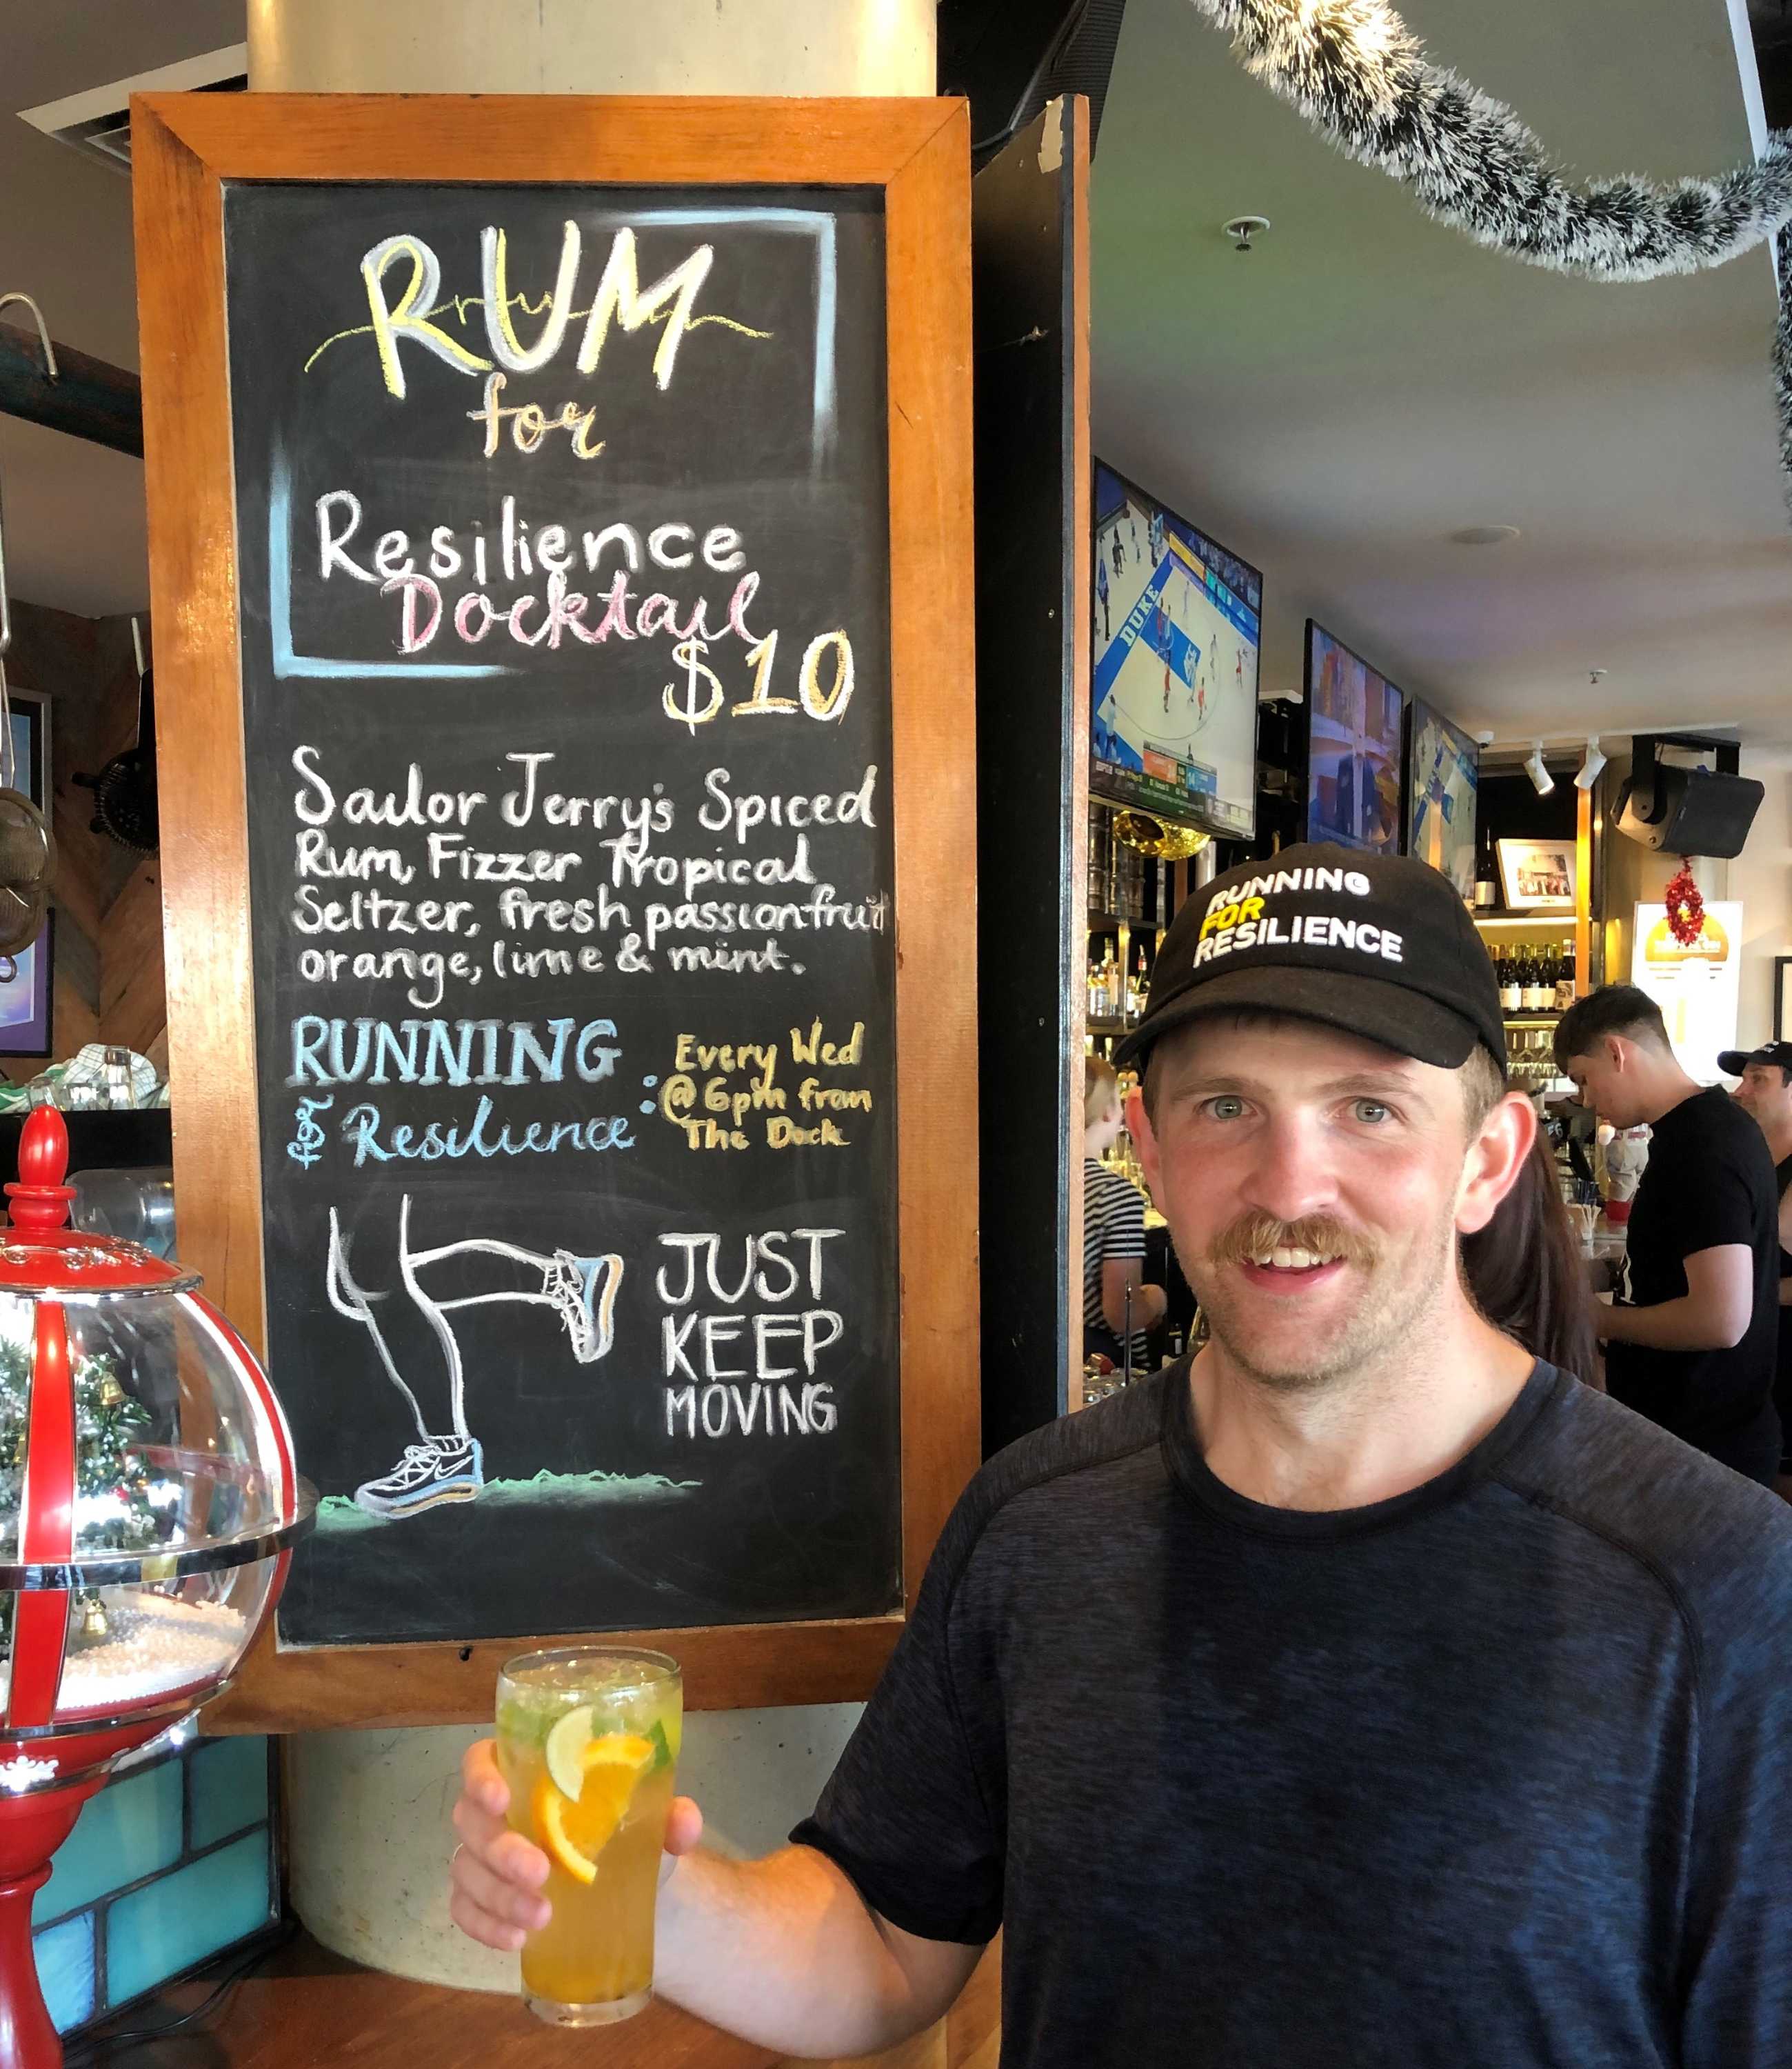 RUM
for
Resilience
Docktail
$10
Sailor Jerry's Spiced
Rum, Fizzer Tropical
Seltzer, fresh passionfruit
orange, lime & mint.
RUNNING
for Resilience :
Every Wed
@ 6pm from
The Dock
JUST
KEEP
MOVING
RUNNING
FOR
RESILIENCE
DUKE